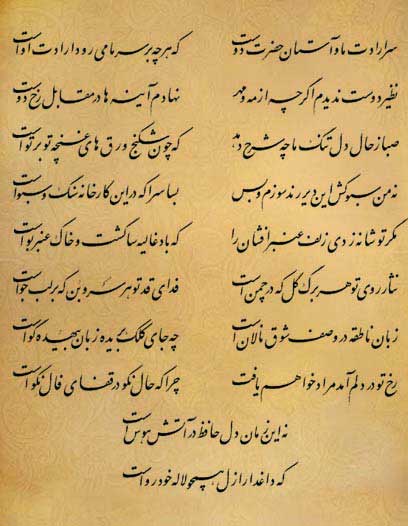 سر ارادت ما و آستان حضرت دوست که هر چه بر سر ما می رود ارادت اوست
نظیر دوست ندیدم اگر چه از مه و مهر نهادم آینه ها در مقابل رخ دوست
صبا ز حال دل تنگ ما چه شرح دهد که چون شکنج ورق های غنچه تو بر توست
نه من سبوکش این دیر رندسوزم و بس بسا سرا که در این کارخانه سنگ و سبوست
مگر تو شانه زدی زلف عنبرافشان را که باد غالیه سا گشت و خاک عنبربوست
نثار روی تو هر برگ گل که در چمن است فدای قد تو هر سروبن که بر لب جوست
زبان ناطقه در وصف شوق نالان است چه جای کلک بریده زبان بیهده گوست
رخ تو در دلم آمد مراد خواهم یافت چرا که حال نکو در قفای فال نکوست
نه این زمان دل حافظ در آتش هوس است
که داغدار ازل همچو لاله خودروست